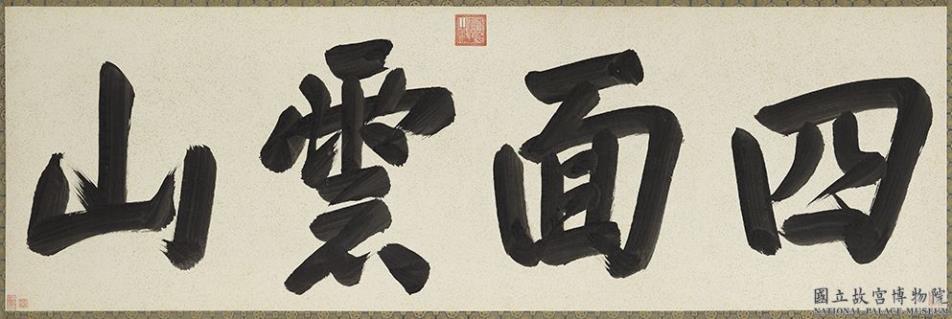 四面雲山
國立故宮博物院
NATIONAL PALACE MUSEUM